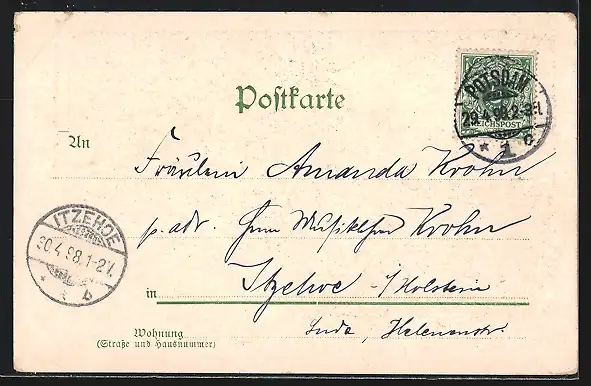 Postkarte
POTSDAM
29.4.98.2-3N.
REICHSPOST
* 1 c
An
Fräulein Amanda Krohn
p. adr. Herrn Musiklehrer Krohn
ITZEHOE
30.4.98.1-2N.
* * b
in Itzehoe - i/Holstein
Helenenstr.
Wohnung
(Straße und Hausnummer)